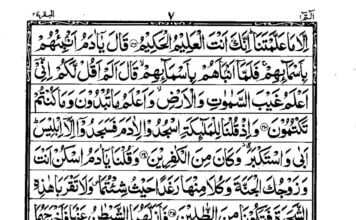 الٓمّٓ ١ ٧ البقرة ٢
اِلَّا مَا عَلَّمْتَنَا اِنَّكَ اَنْتَ الْعَلِيْمُ الْحَكِيْمُ قَالَ يٰٓاٰدَمُ اَنْۢبِئْهُمْ
بِاَسْمَآئِهِمْ فَلَمَّآ اَنْۢبَاَهُمْ بِاَسْمَآئِهِمْ قَالَ اَلَمْ اَقُلْ لَّكُمْ اِنِّيْٓ
اَعْلَمُ غَيْبَ السَّمٰوٰتِ وَالْاَرْضِ وَاَعْلَمُ مَا تُبْدُوْنَ وَمَا كُنْتُمْ
تَكْتُمُوْنَ وَاِذْ قُلْنَا لِلْمَلٰٓئِكَةِ اسْجُدُوْا لِاٰدَمَ فَسَجَدُوْٓا اِلَّآ اِبْلِيْسَ
اَبٰى وَاسْتَكْبَرَ وَكَانَ مِنَ الْكٰفِرِيْنَ وَقُلْنَا يٰٓاٰدَمُ اسْكُنْ اَنْتَ
وَزَوْجُكَ الْجَنَّةَ وَكُلَا مِنْهَا رَغَدًا حَيْثُ شِئْتُمَا وَلَا تَقْرَبَا هٰذِهِ
الشَّجَرَةَ فَتَكُوْنَا مِنَ الظّٰلِمِيْنَ فَاَزَلَّهُمَا الشَّيْطٰنُ عَنْهَا فَاَخْرَجَهُمَا